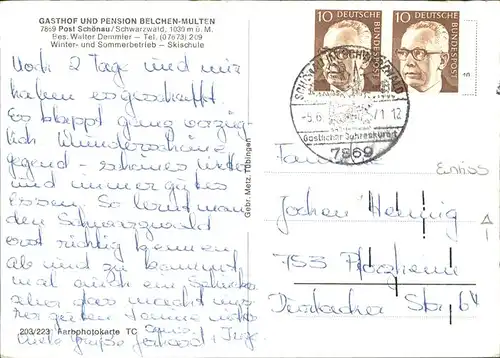 GASTHOF UND PENSION BELCHEN-MULTEN
7869 Post Schönau/Schwarzwald, 1039 m ü. M.
Bes. Walter Demmler — Tel. (07673) 209
Winter- und Sommerbetrieb — Skischule
Noch 2 Tage und wir
haben es geschafft.
Es klappt ganz vorzüg-
lich. Wunderschöne
Gegend - schönes Wetter
und immer gutes
Essen. So lernt man
den Schwarzwald
erst richtig kennen,
ab und zu kommt
mal auch ein
aber das macht uns
bei guten nichts
aus.
Viele Grüße
203/223 Farbphotokarte TC
Gebr. Metz, Tübingen
10 DEUTSCHE BUNDESPOST
10 DEUTSCHE BUNDESPOST
SCHÖNAU IM SCHWARZWALD
-5.6. 71.12
Gastlicher Jahreskurort
7869
Familie
Jochen Hennig
753 Pforzheim
Durlacher Str. 64